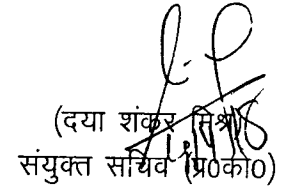 (दया शंकर मिश्र)
संयुक्त सचिव (प्र0को0)